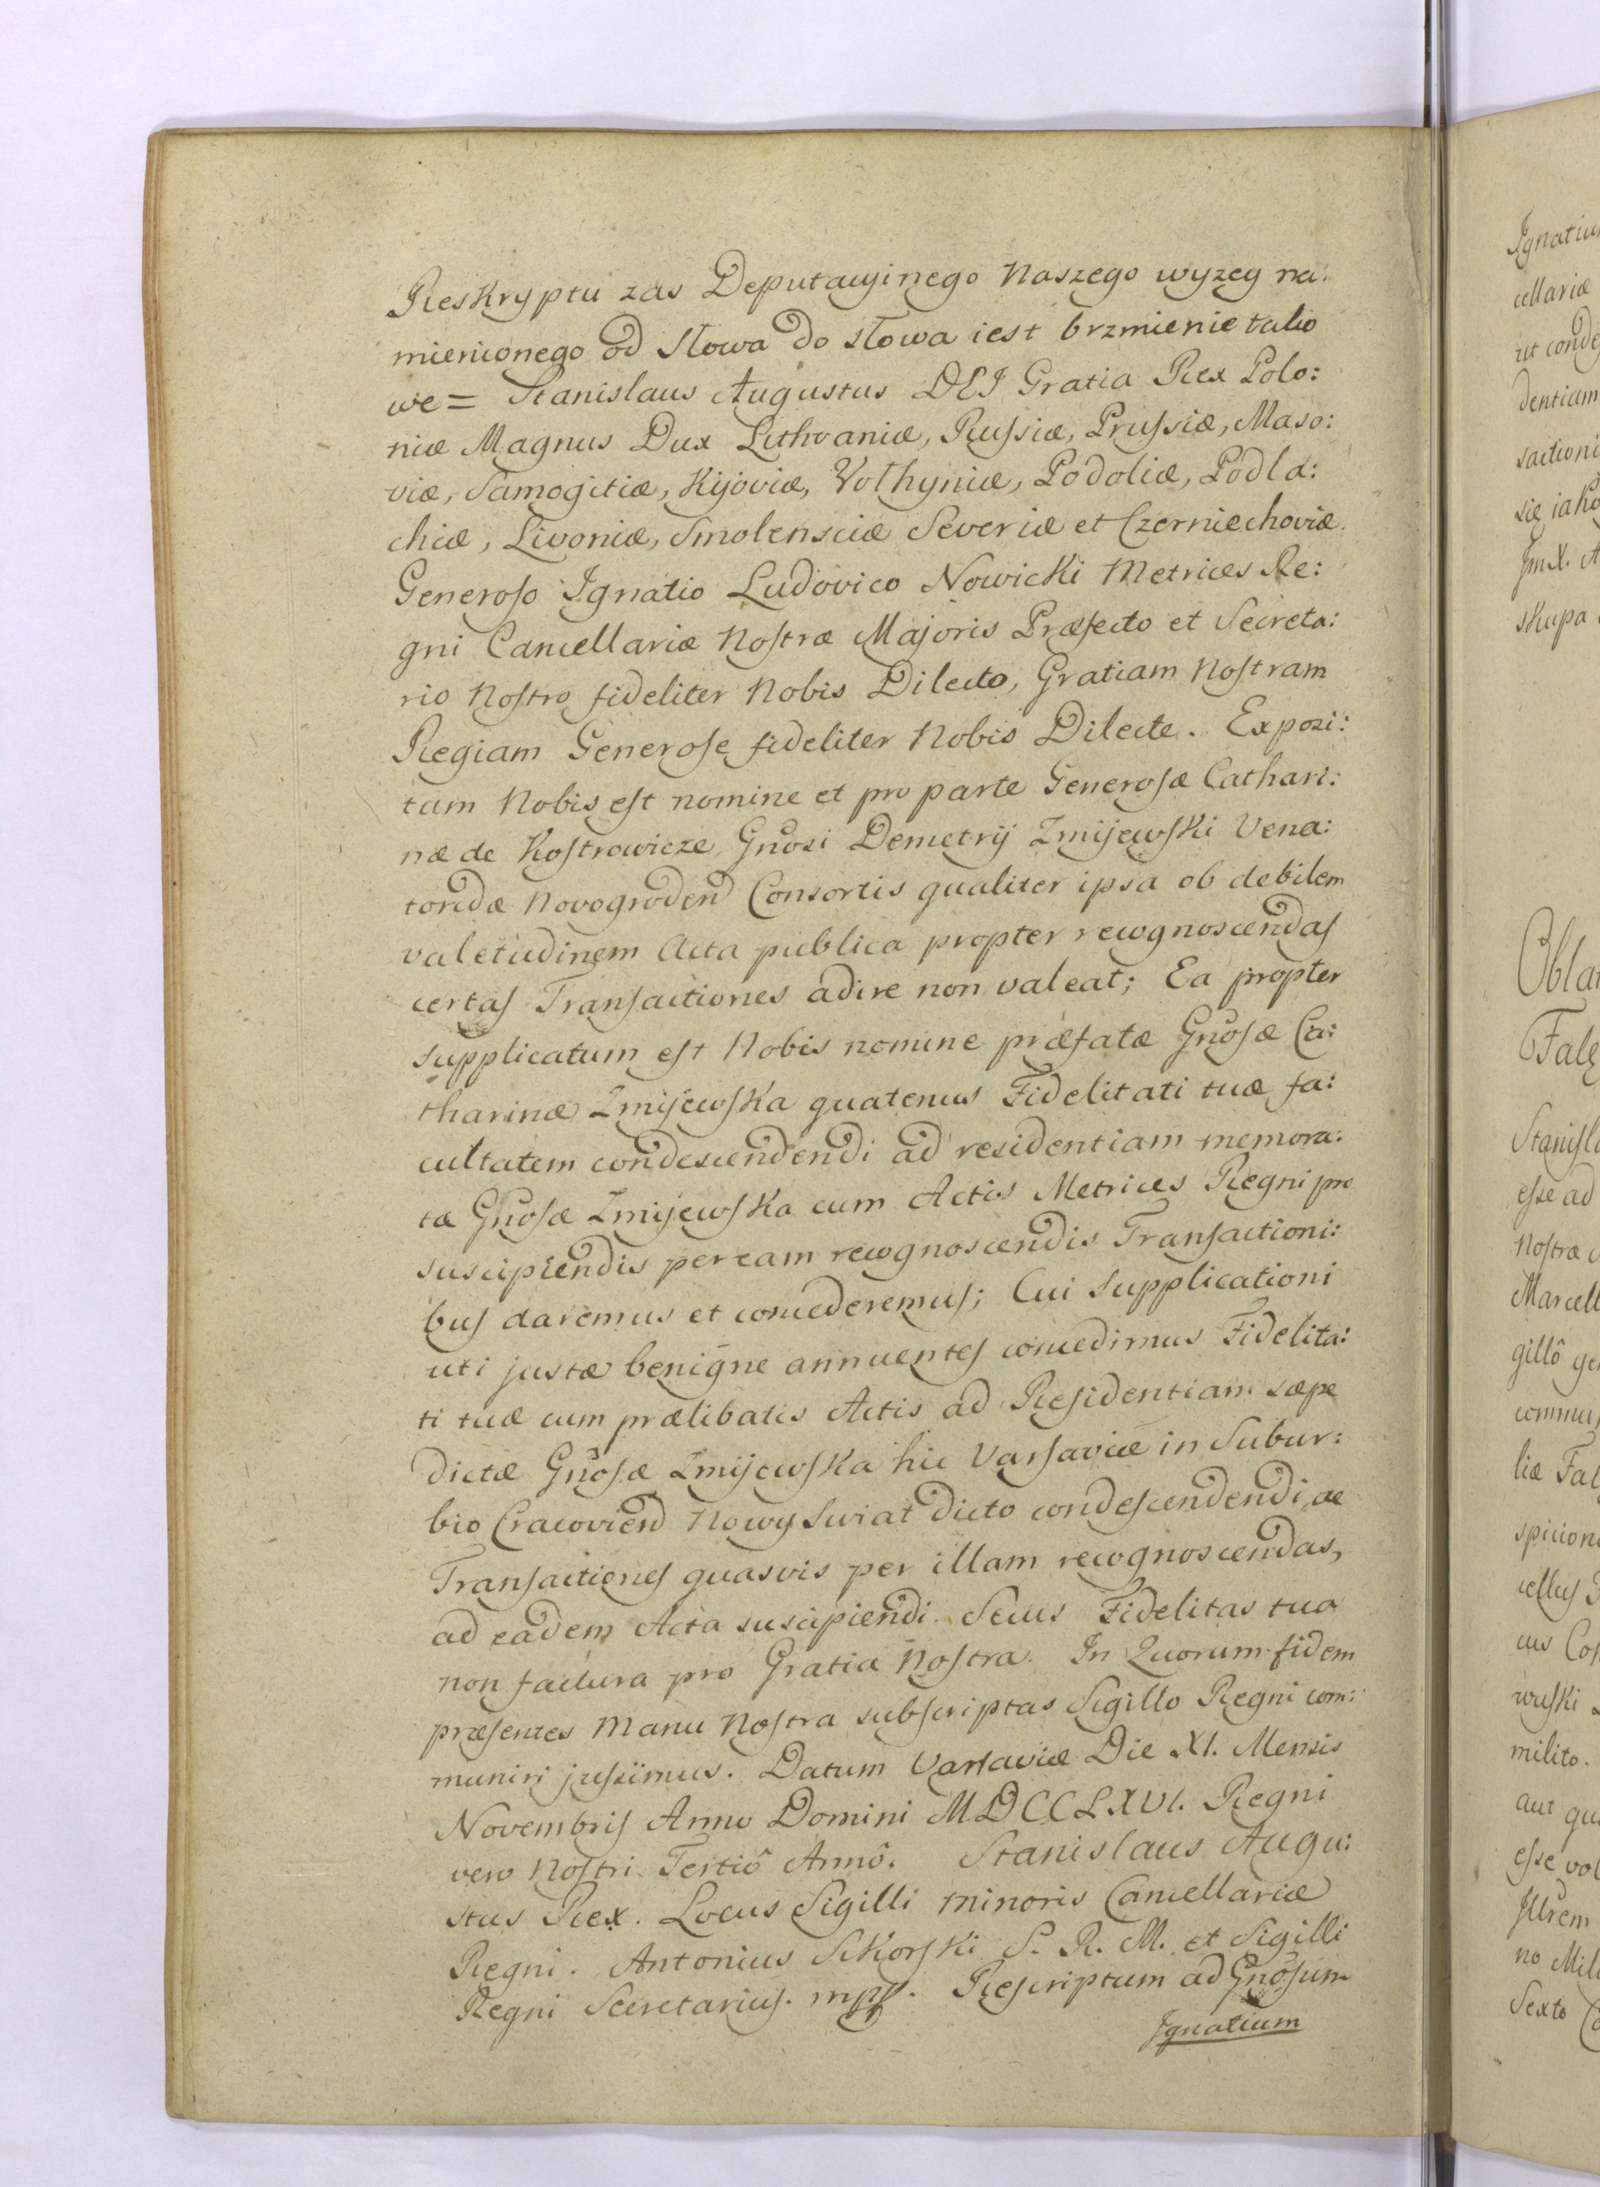 Reskryptu zas Deputacyinego Naszego wyzey na:
mienionego od Słowa do słowa iest brzmienie tako
we = Stanislaus Augustus DEI Gratia Rex Polo:
niæ Magnus Dux Lithvaniæ, Russiæ, Prussiæ, Maso:
viæ, Samogitiæ, Kijoviæ, Volhyniæ, Podoliæ, Podla:
chiæ, Livoniæ, Smolensciæ Severiæ et Czerniechoviæ.
Generoso Ignatio Ludovico Nowicki Metrices Re:
gni Cancellariæ Nostræ Majoris Præfecto et Secreta:
rio Nostro fideliter Nobis Dilecto, Gratiam Nostram
Regiam Generose fideliter Nobis Dilecte. Expozi:
tum Nobis est nomine et pro parte Generosæ Cathari:
næ de Kostrowicze Gnosi Demetrij Zmijewski Vena:
toridæ Novogroden Consortis qualiter ipsa ob debilem
valetudinem Acta publica propter recognoscendas
certas Transactiones adire non valeat; Ea propter
supplicatum est Nobis nomine præfatæ Gnosæ Ca:
tharinæ Zmijewska quatenus Fidelitati tuæ fa:
cultatem condescendendi ad residentiam memora:
tæ Gnosæ Zmijewska cum Actis Metrices Regni pro
suscipiendis per eam recognoscendis Transactioni:
bus daremus et concederemus; Cui Supplicationi
uti justæ benigne annuentes concedimus Fidelita:
ti tuæ cum prælibatis Actis ad Residentiam sæpe
dictæ Gnosæ Zmijewska hic Varsaviæ in Subur:
bio Cracovien Nowy Swiat dicto condescendendi, ac
Transactiones quasvis per illam recognoscendas,
ad eadem Acta suscipiendi. Secus Fidelitas tua
non factura pro Gratia Nostra. In Quorum fidem
præsentes Manu Nostra subscriptas Sigillo Regni com:
muniri jussimus. Datum Varsaviæ Die XI. Mensis
Novembris Anno Domini MDCCLXVI. Regni
vero Nostri Tertiô Annô. Stanislaus Augu:
stus Rex. Locus Sigilli minoris Cancellariæ
Regni. Antonius Sikorski S. R. M. et Sigilli
Regni Secretarius. mpp. Rescriptum ad Gnosum
Ignatium
Ignatiu
cellariæ
dentiam
sactioni
się iako
skupa
Obla
Stanisla
esse ad
Nostræ
Marcell
gillô ge
commu
liæ Fal
milito.
aut qu
esse vol
Illrem
no Mil
Sexto